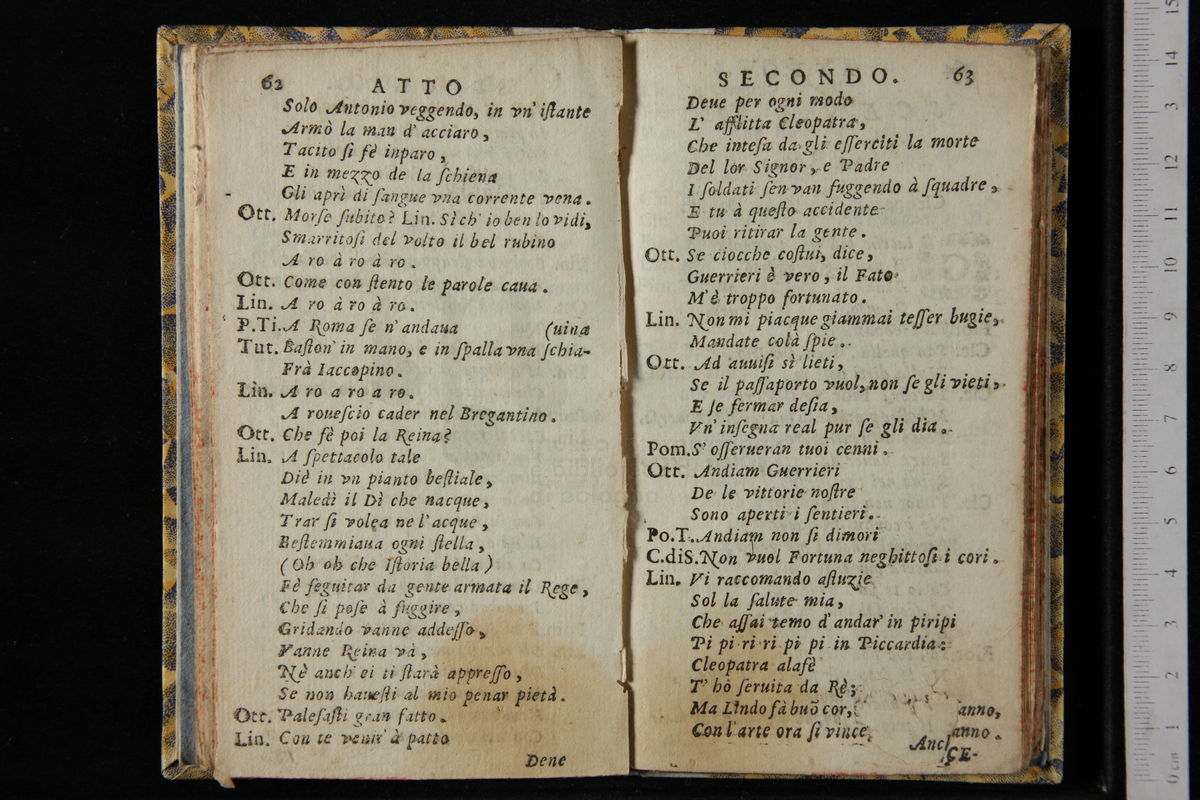 62 ATTO
Solo Antonio veggendo, in vn' iſtante
Armò la man d' acciaro,
Tacito ſi fè inparo,
E in mezzo de la ſchiena
Gli aprì di ſangue vna corrente vena.
Ott. Morſe ſubito? Lin. Sì ch' io ben lo vidi,
Smarritoſi del volto il bel rubino
A ro à ro à ro.
Ott. Come con ſtento le parole caua.
Lin. A ro à ro à ro.
P.Ti. A Roma ſe n' andaua (uina
Tut. Baſton' in mano, e in ſpalla vna ſchia-
Frà Iaccopino.
Lin. A ro a ro a ro.
A roueſcio cader nel Bregantino.
Ott. Che fè poi la Reina?
Lin. A ſpettacolo tale
Diè in vn pianto beſtiale,
Maledì il Dì che nacque,
Trar ſi volea ne l' acque,
Beſtemmiaua ogni ſtella,
(Oh oh che Iſtoria bella)
Fè ſeguitar da gente armata il Rege,
Che ſi poſe à fuggire,
Gridando vanne addeſſo,
Vanne Reina và,
Nè anch' ei ti ſtarà appreſſo,
Se non haueſti al mio penar pietà.
Ott. Paleſaſti gran fatto.
Lin. Con te venir' à patto
Dene
SECONDO. 63
Deue per ogni modo
L' afflitta Cleopatra,
Che inteſa da gli eſſerciti la morte
Del lor Signor, e Padre
I ſoldati ſen van fuggendo à ſquadre,
E tu à queſto accidente
Puoi ritirar la gente.
Ott. Se ciocche coſtui, dice,
Guerrieri è vero, il Fato
M'è troppo fortunato.
Lin. Non mi piacque giammai teſſer bugie,
Mandate colà ſpie.
Ott. Ad auuiſi sì lieti,
Se il paſſaporto vuol, non ſe gli vieti,
E ſe fermar deſia,
Vn' inſegna real pur ſe gli dia.
Pom. S' oſſerueran tuoi cenni.
Ott. Andiam Guerrieri
De le vittorie noſtre
Sono aperti i ſentieri.
Po.T. Andiam non ſi dimori
C.diS. Non vuol Fortuna neghittoſi i cori.
Lin. Vi raccomando aſtuzie
Sol la ſalute mia,
Che aſſai temo d' andar' in piripi
Pi pi ri ri pi pi in Piccardia:
Cleopatra alafè
T' hò ſeruita da Rè;
Ma Lindo fà buō cor, anno,
Con l'arte ora ſi vince anno.
CE-